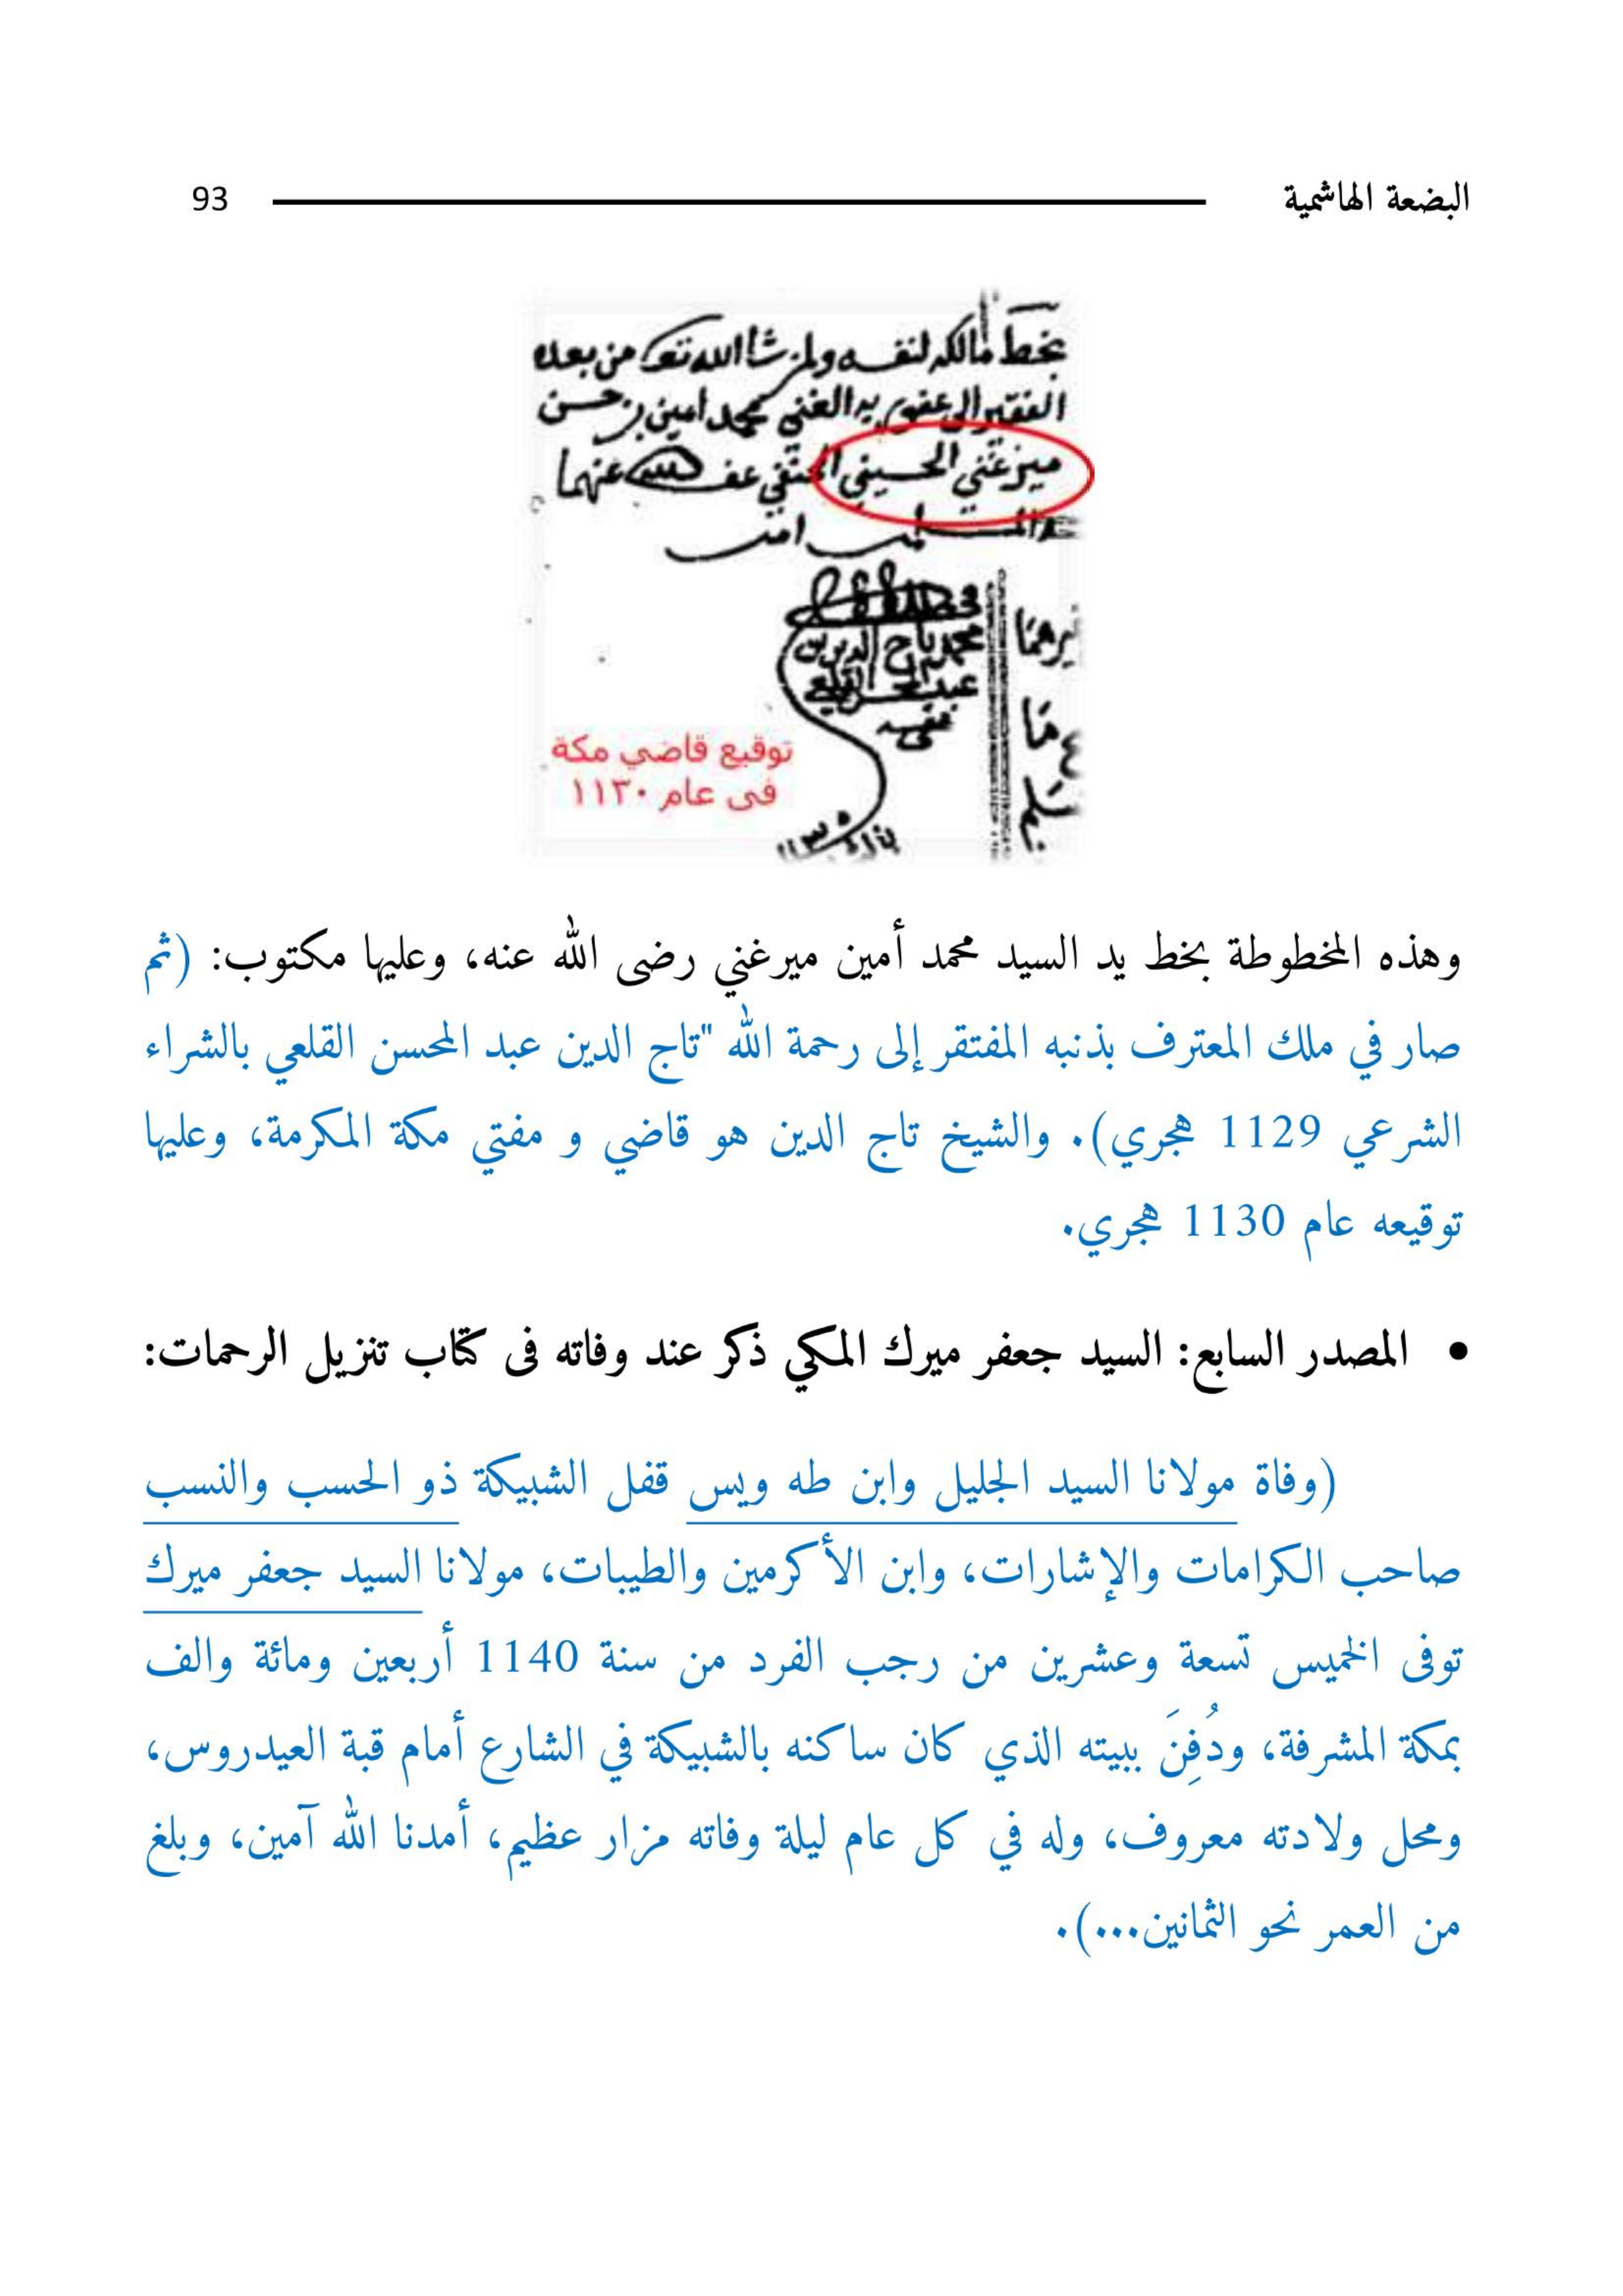 البضعة الهاشمية 93
بخط مالكه لنفسه ولمن شا الله تعالى من بعده
الفقير الى عفو ربه الغني محمد امين بن حسن
ميرغني الحسيني الحنفي عف الله عنهما
امين
محمد تاج الدين بن
عبد المحسن القلعي
توقيع قاضي مكة
فى عام ١١٣٠
وهذه المخطوطة بخط يد السيد محمد أمين ميرغني رضى الله عنه، وعليها مكتوب: (ثم
صار في ملك المعترف بذنبه المفتقر إلى رحمة الله "تاج الدين عبد المحسن القلعي بالشراء
الشرعي 1129 هجري). والشيخ تاج الدين هو قاضي و مفتي مكة المكرمة، وعليها
توقيعه عام 1130 هجري.
• المصدر السابع: السيد جعفر ميرك المكي ذكر عند وفاته فى كتاب تنزيل الرحمات:
(وفاة مولانا السيد الجليل وابن طه ويس قفل الشبيكة ذو الحسب والنسب
صاحب الكرامات والإشارات، وابن الأكرمين والطيبات، مولانا السيد جعفر ميرك
توفى الخميس تسعة وعشرين من رجب الفرد من سنة 1140 أربعين ومائة والف
بمكة المشرفة، ودُفِنَ ببيته الذي كان ساكنه بالشبيكة في الشارع أمام قبة العيدروس،
ومحل ولادته معروف، وله في كل عام ليلة وفاته مزار عظيم، أمدنا الله آمين، وبلغ
من العمر نحو الثمانين...).